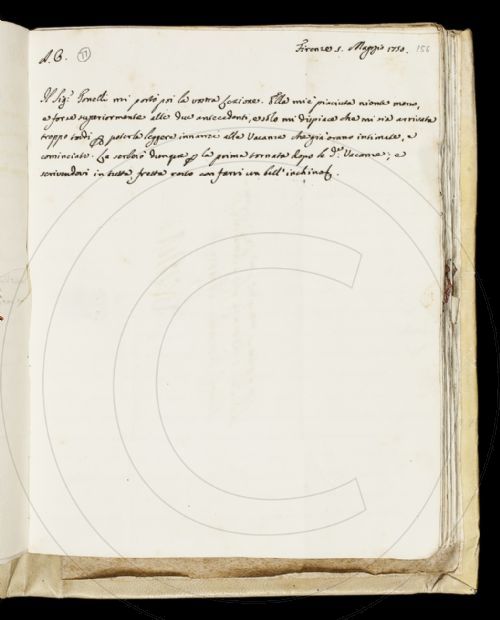 A.C. 77 Firenze 1. Maggio 1750. 156
Il Sig.r Tonelli mi portò poi la vostra Lezione. Ella mi è piaciuta niente meno,
e forse superiormente alle due antecedenti, e solo mi dispiace che mi sia arrivata
troppo tardi p poterla leggere innanzi alle Vacanze che già erano intimate, e
cominciate. La serberò dunque p la prima tornata dopo le d.e Vacanze; e
scrivendovi in tutta fretta resto con farvi un bell'inchino.